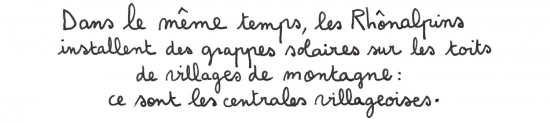 Dans le même temps, les Rhônalpins
installent des grappes solaires sur les toits
de villages de montagne :
ce sont les centrales villageoises.